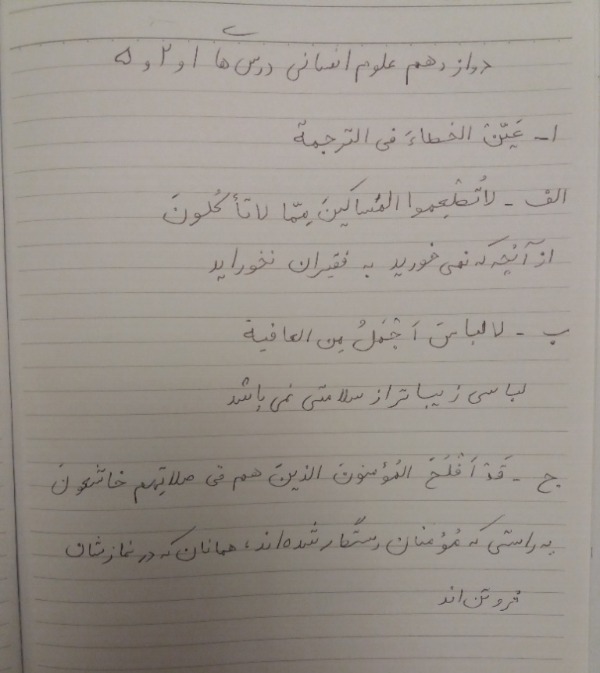 دوازدهم علوم انسانی درس ها ۱ و ۲ و ۵
۱- عَیِّنْ الخطاءَ فی الترجمة
الف - لاتُطْعِموا المَساکینَ مِمّا لا تأکُلونَ
از آنچه که نمی خورید به فقیران نخورانید
ب - لا لباسَ اَجْمَلُ مِن العافیة
لباسی زیباتر از سلامتی نمی باشد
ج - قَدْ اَفْلَحَ المُؤمنونَ الذینَ هم فی صلاتِهم خاشعونَ
به راستی که مُؤمنان رستگار شده اند، همانان که در نمازشان
فروتن اند